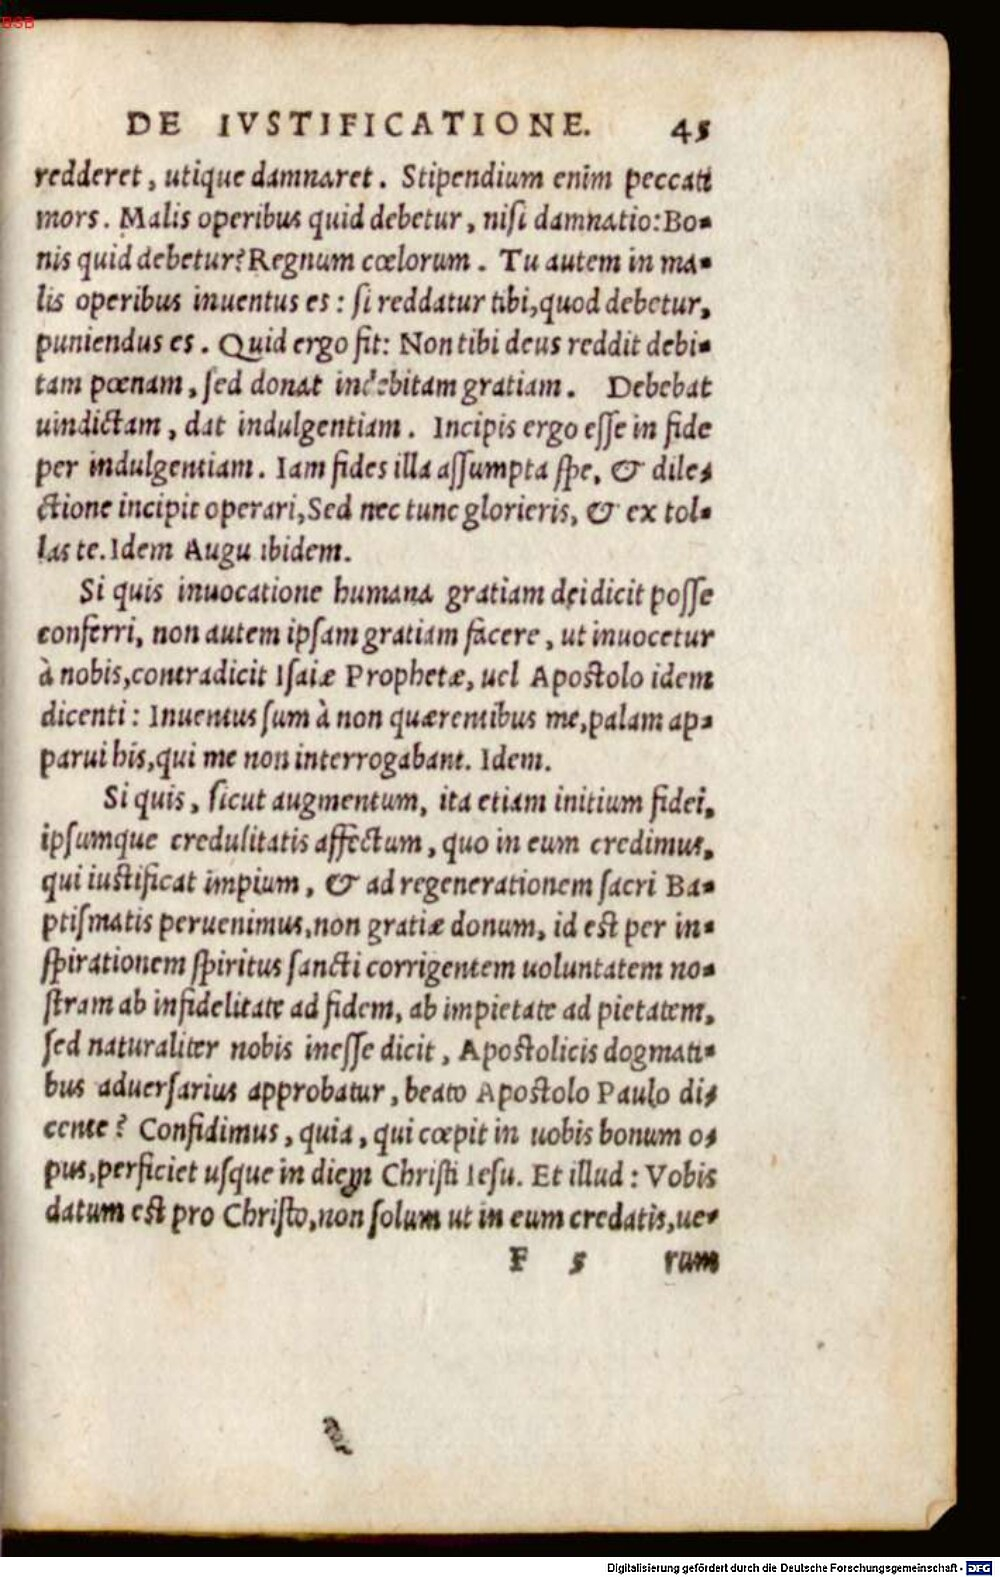 BSB
DE IVSTIFICATIONE. 45
redderet, utique damnaret. Stipendium enim peccati
mors. Malis operibus quid debetur, nisi damnatio: Bo-
nis quid debetur? Regnum cœlorum. Tu autem in ma-
lis operibus inuentus es: si reddatur tibi, quod debetur,
puniendus es. Quid ergo fit: Non tibi deus reddit debi-
tam pœnam, sed donat indebitam gratiam. Debebat
uindictam, dat indulgentiam. Incipis ergo esse in fide
per indulgentiam. Iam fides illa assumpta spe, & dile-
ctione incipit operari, Sed nec tunc glorieris, & ex tol-
las te. Idem Augu ibidem.
Si quis inuocatione humana gratiam dei dicit posse
conferri, non autem ipsam gratiam facere, ut inuocetur
à nobis, contradicit Isaiæ Prophetæ, uel Apostolo idem
dicenti: Inuentus sum à non quærentibus me, palam ap-
parui his, qui me non interrogabant. Idem.
Si quis, sicut augmentum, ita etiam initium fidei,
ipsumque credulitatis affectum, quo in eum credimus,
qui iustificat impium, & ad regenerationem sacri Ba-
ptismatis peruenimus, non gratiæ donum, id est per in-
spirationem spiritus sancti corrigentem uoluntatem no-
stram ab infidelitate ad fidem, ab impietate ad pietatem,
sed naturaliter nobis inesse dicit, Apostolicis dogmati-
bus aduersarius approbatur, beato Apostolo Paulo di-
cente? Confidimus, quia, qui cœpit in uobis bonum o-
pus, perficiet usque in diem Christi Iesu. Et illud: Vobis
datum est pro Christo, non solum ut in eum credatis, ue-
F 5 rum
Digitalisierung gefördert durch die Deutsche Forschungsgemeinschaft - DFG